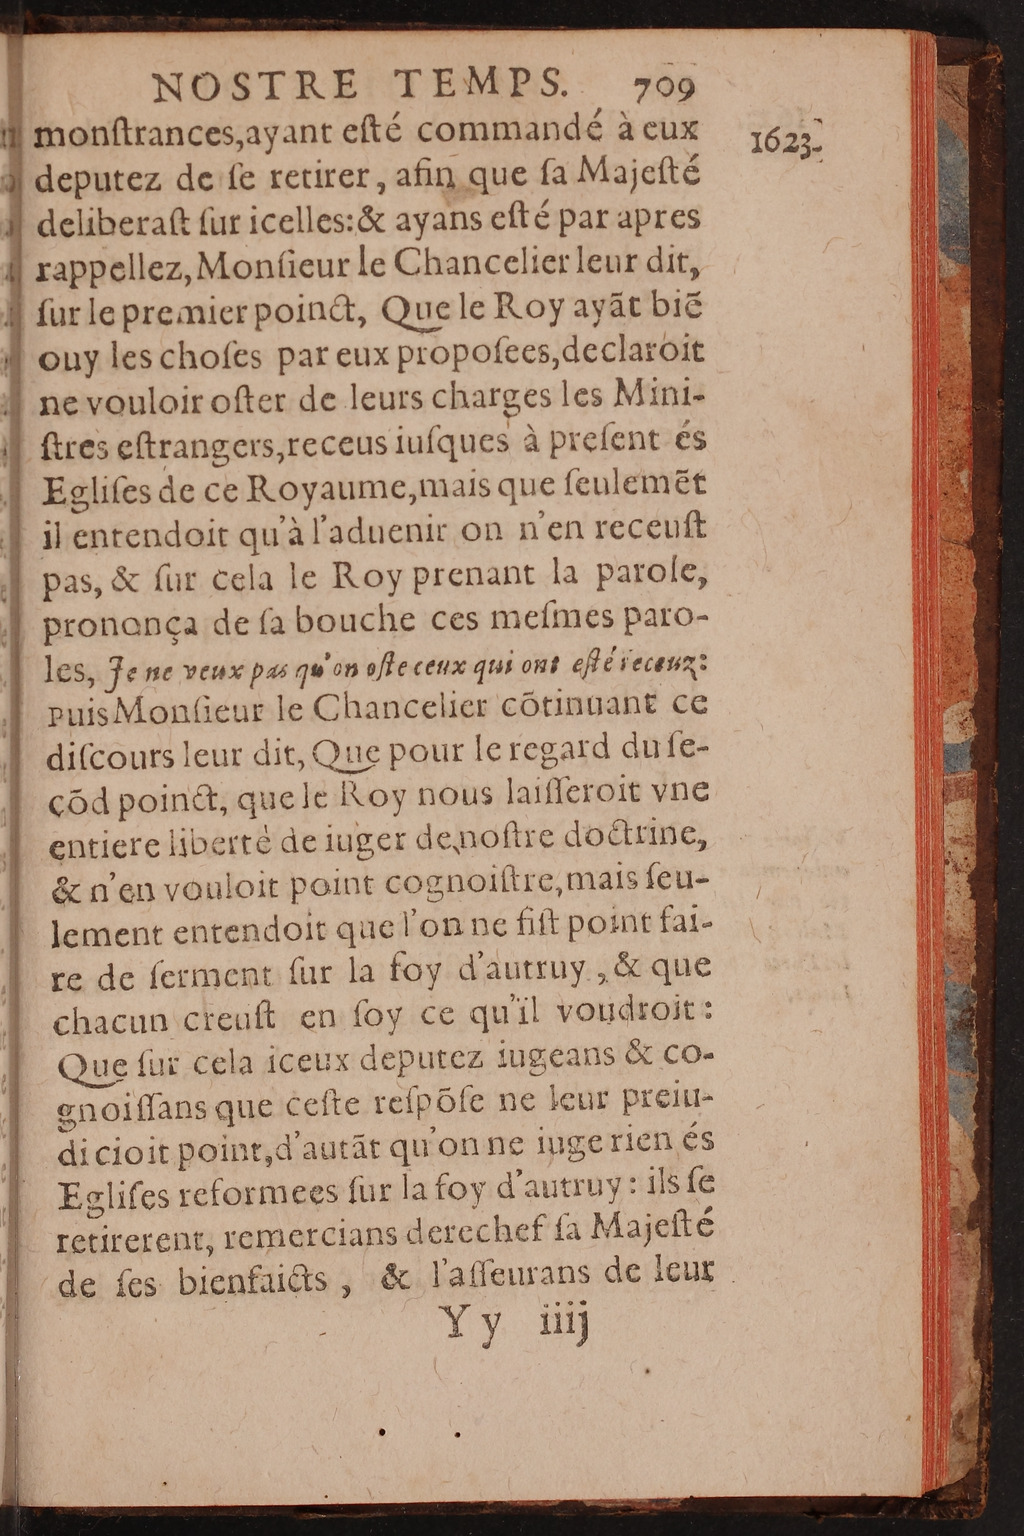 NOSTRE TEMPS. 709
1623.
monſtrances,ayant eſté commandé à eux
deputez de ſe retirer, afin que ſa Majeſté
deliberaſt ſur icelles:& ayans eſté par apres
rappellez, Monſieur le Chancelier leur dit,
ſur le premier poinct, Que le Roy ayãt biẽ
ouy les choſes par eux propoſees,declaroit
ne vouloir oſter de leurs charges les Mini-
ſtres eſtrangers,receus iuſques à preſent és
Egliſes de ce Royaume,mais que ſeulemẽt
il entendoit qu'à l'aduenir on n'en receuſt
pas, & ſur cela le Roy prenant la parole,
prononça de ſa bouche ces meſmes paro-
les, Je ne veux pas qu'on oſte ceux qui ont eſté receuz:
puis Monſieur le Chancelier cõtinuant ce
diſcours leur dit, Que pour le regard du ſe-
cõd poinct, que le Roy nous laiſſeroit vne
entiere liberté de iuger de noſtre doctrine,
& n'en vouloit point cognoiſtre,mais ſeu-
lement entendoit que l'on ne fiſt point fai-
re de ſerment ſur la foy d'autruy, & que
chacun creuſt en ſoy ce qu'il voudroit:
Que ſur cela iceux deputez iugeans & co-
gnoiſſans que ceſte reſpõſe ne leur preiu-
dicioit point,d'autãt qu'on ne iuge rien és
Egliſes reformees ſur la foy d'autruy: ils ſe
retirerent, remercians derechef ſa Majeſté
de ſes bienfaicts, & l'aſſeurans de leur
Y y iiij